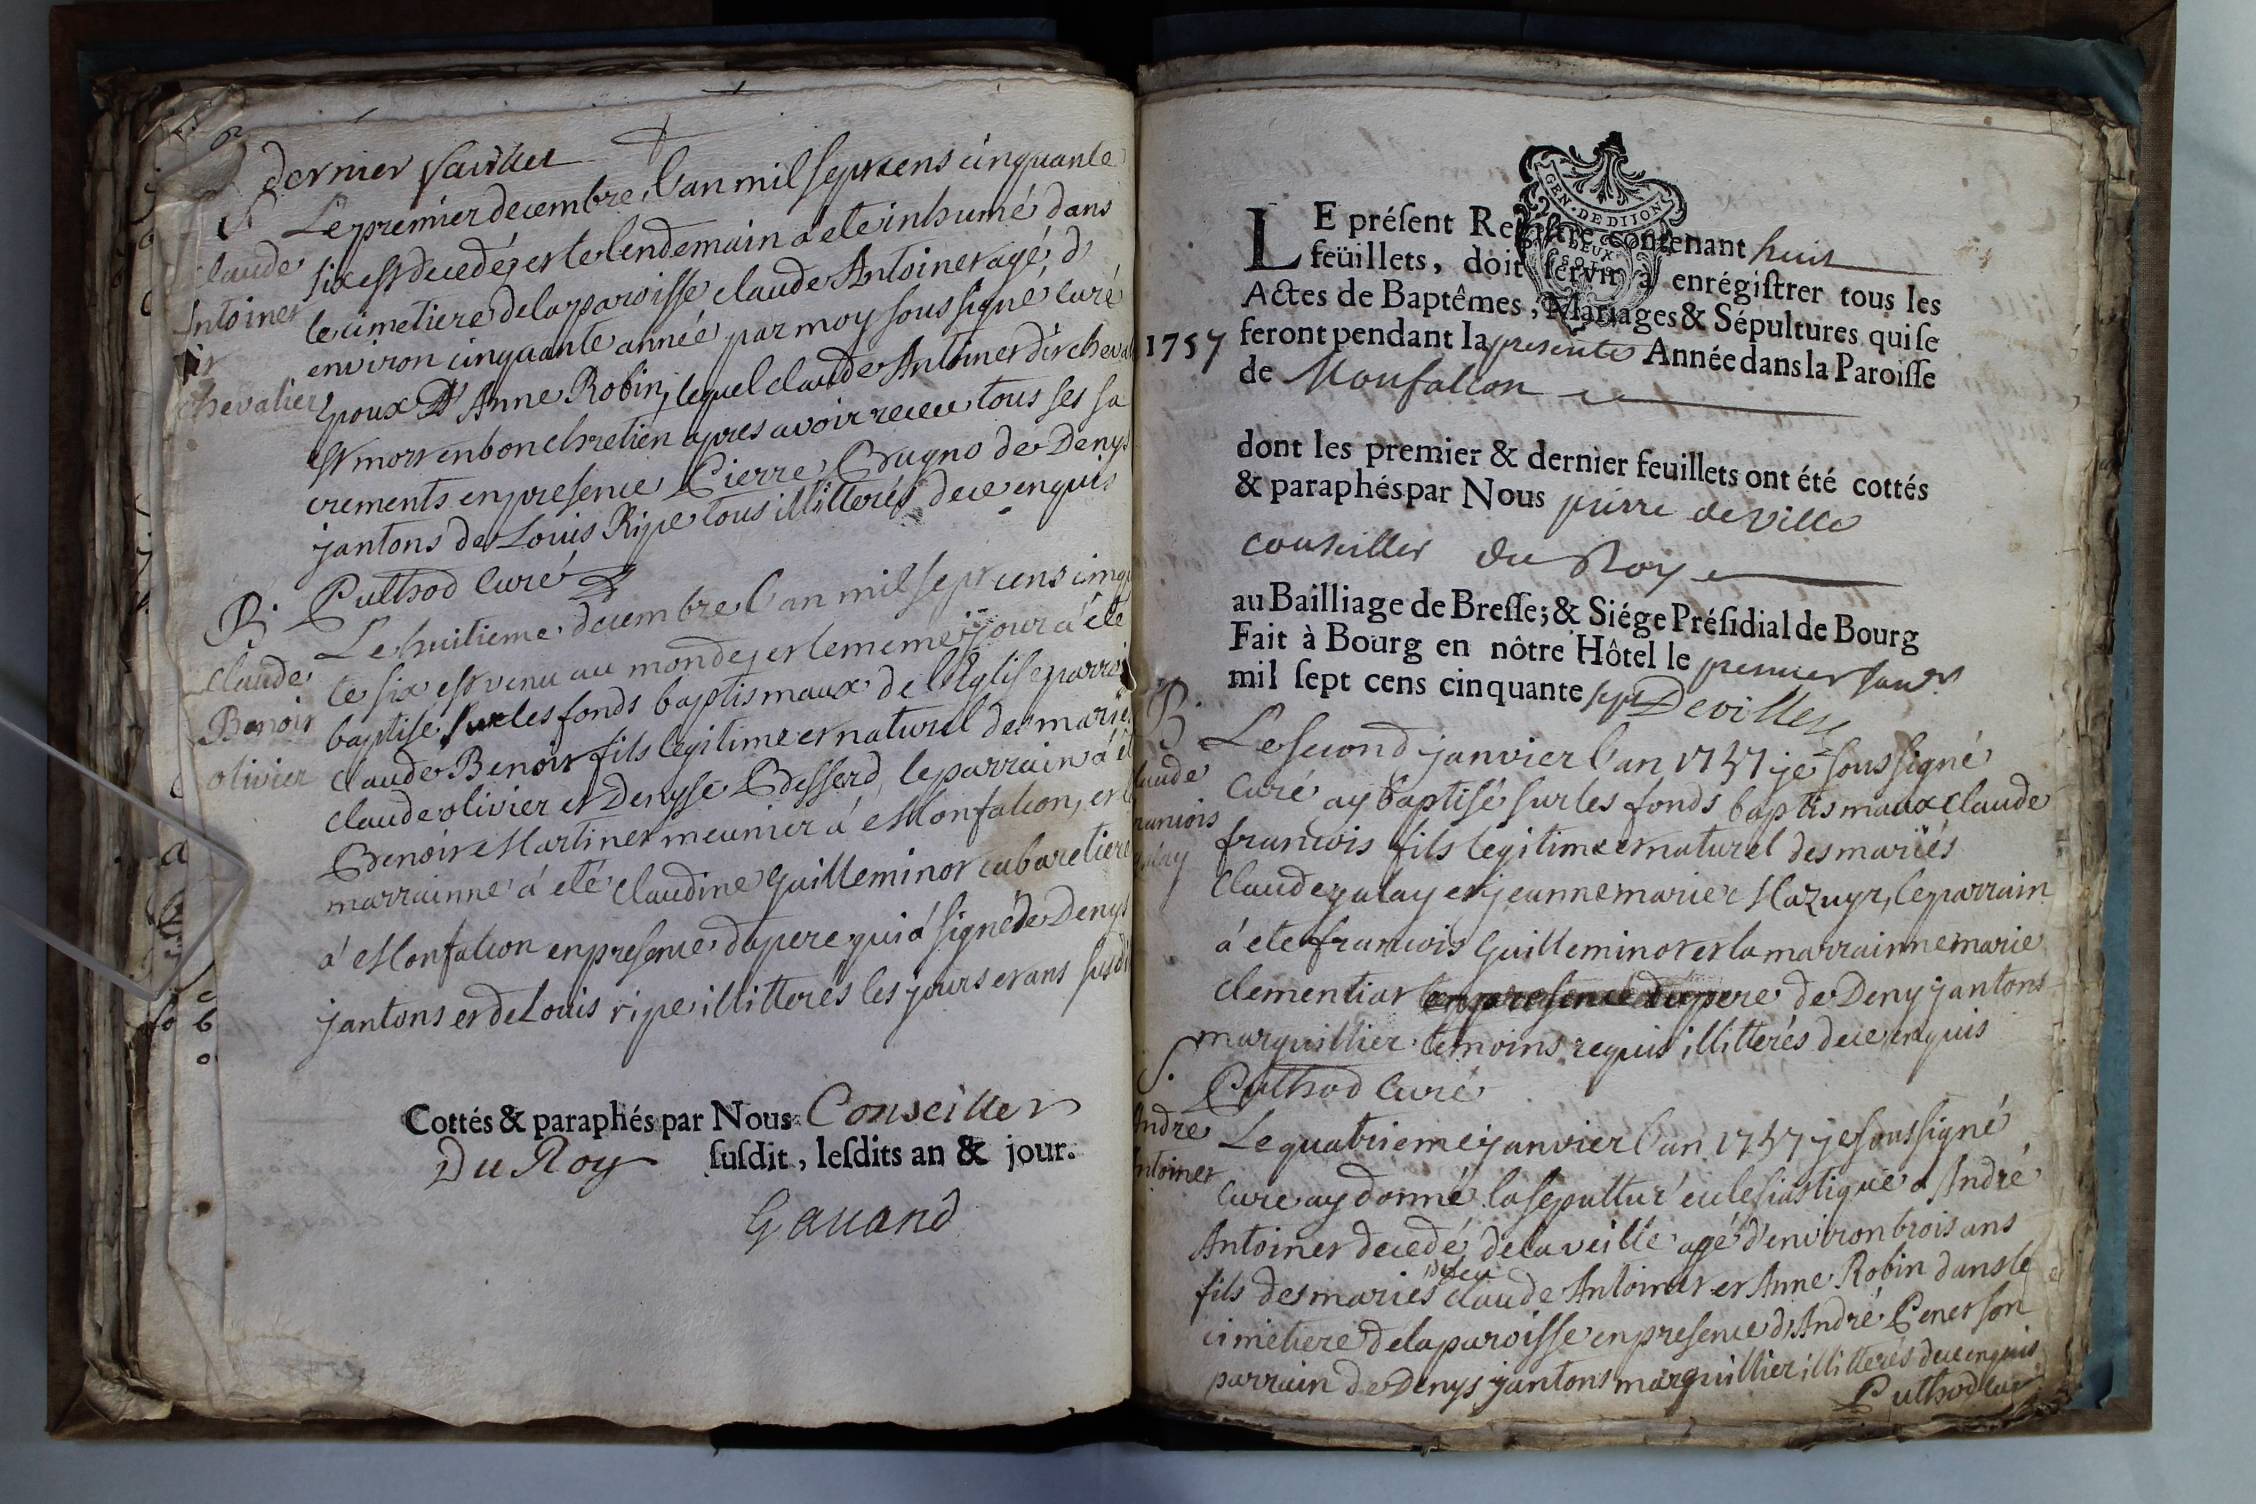 dernier faiullet
S
Claude
Antoinet
dit
chevalier
Le premier decembre l'an mil sept cens cinquante
six est decedé, et le lendemain a ete inhumé dans
le cimetiere de la paroisse claude Antoinet agé d
environ cinquante année par moy soussigné Curé
Epoux D' Anne Robin, lequel claude Antoinet dit cheval
est mort en bon chretien apres avoir receu tous ses sa
crements en presence Pierre Bugno de Denys
jantons de Louis Ripe tous illitterés de ce enquis
Puthod Curé
B.
Claude
Benoit
olivier
Le huitieme decembre l'an mil sept cens cinqu
te six est venu au monde, et le meme jour a été
baptisé sur les fonds baptismaux de l'Eglise parroi
claude Benoit fils legitime et naturel des mariés
claude olivier et Denyse Besserd, le parrain a é
Benoit Martinet meunier á Monfalcon, et l
marrainne a eté Claudine Guilleminot cabaretiere
á Monfalcon en presence du pere qui a signé de Denys
jantons et de Louis ripe illitterés les jours et ans susdi
Cottés & paraphés par Nous Conseiller
Du Roy susdit, lesdits an & jour.
Gauand
GEN·DE DIJON
DEUX
SOLS
LE présent Registre contenant huit
feüillets, doit servir à enrégistrer tous les
Actes de Baptêmes, Mariages & Sépultures qui se
1757 feront pendant la presente Année dans la Paroisse
de Monfalcon
dont les premier & dernier feuillets ont été cottés
& paraphés par Nous pierre deville
conseiller du Roy
au Bailliage de Bresse; & Siége Présidial de Bourg
Fait à Bourg en nôtre Hôtel le premier janv.r
mil sept cens cinquante sept Deville
B.
laude
rancois
galay
Le second janvier l'an 1757 je soussigné
Curé ay baptisé sur les fonds baptismaux claude
francois fils legitime et naturel des mariés
Claude galay et jeanne marie Mazuyr, le parrain
á ete francois Guilleminot et la marrainne marie
clementiat en presence du pere de Deny jantons
marguillier temoins requis illitterés de ce enquis
Puthod Curé
S.
Andre
Antoinet
Le quatrieme janvier l'an 1757 je soussigné
Cure ay donné la sepulture eclesiastique a André
Antoinet decedé de la veille agé d'environ trois ans
fils des mariés defeu claude Antoinet et Anne Robin dans le
cimetiere de la paroisse en presence d'André Penet son
parrain de Denys jantons marguillier illitterés de ce enquis
Puthod Curé